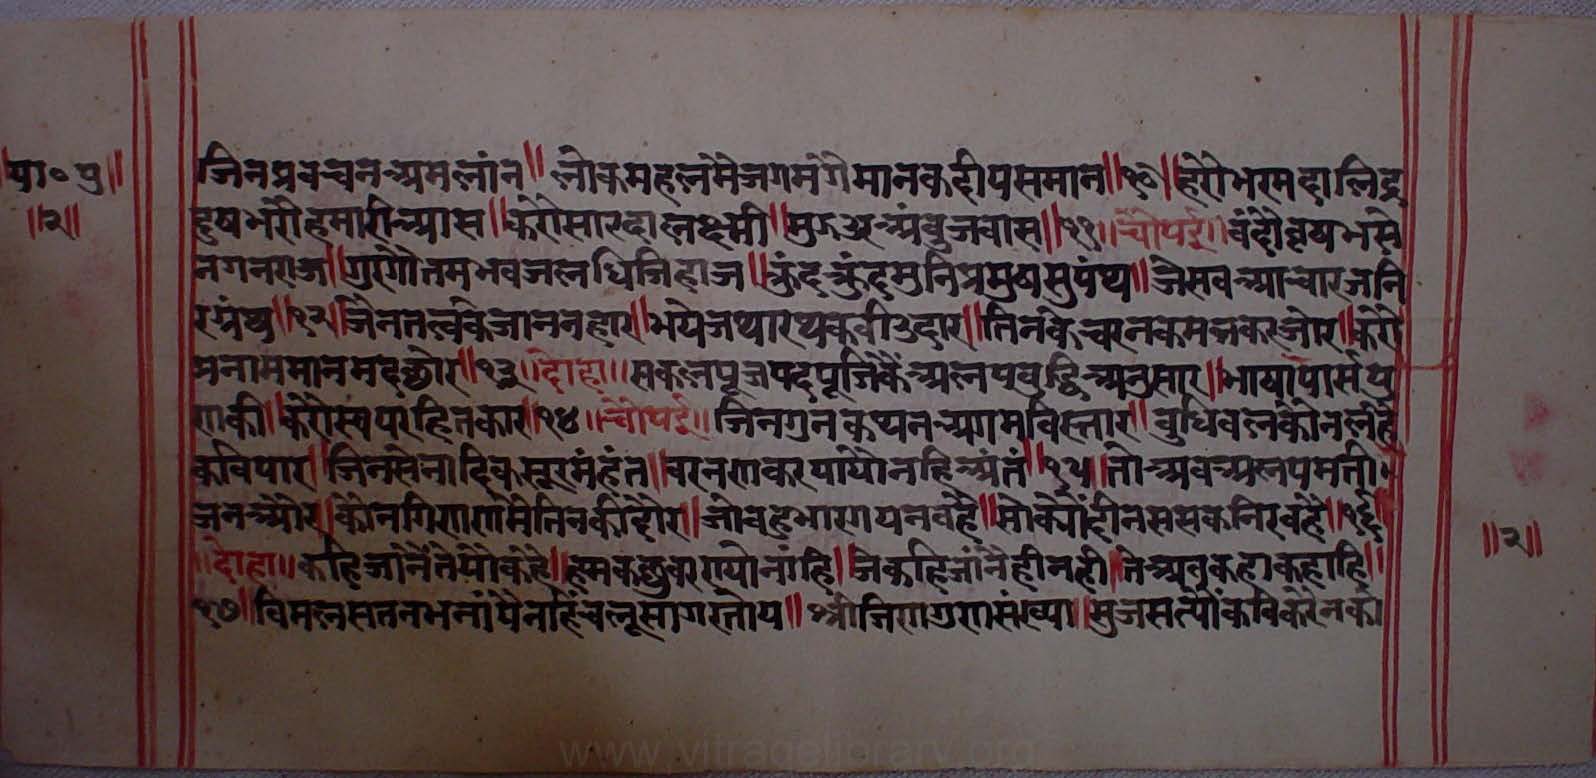 पा० पु॥
॥२॥
जिनप्रवचनअमलांन॥ लोकमहलमैजगमगैमानकदीपसमान॥१०॥हरोभरमदालिद्र
दुषभरौहमारीआस॥करौसारदालक्ष्मी॥मुझअअंबुजवास॥११॥चौपई॥वंदौव्रषभसे
नगनराज॥गुरगौतमभवजलधिजिहाज॥कुंदकुंदमुनिप्रमुषसुपंथ॥जेसवआचारजनि
रग्रंथ॥१२॥जैनतत्वकेजाननहार॥भयेजथारथकवीउदार॥तिनकेचरनकमलकरजोर॥करौ
प्रनाममानमदछोर॥१३॥दोहा॥सकलपूजपदपूजिकैंअलपबुद्धिअनुसार॥भाषापार्सपु
राणकी॥करौस्वपरहितकार॥१४॥चौपई॥जिनगुनकथनअगमविस्तार॥बुधिवलकौनलहै
कविपार॥जिनसेनादिकसूरमहंत॥वरनणकरपायौनहिअंतं॥१५॥तौअवअलपमती
जनऔर॥कौनगिणणमैतिनकीदौर॥जोवहुभारगयनवहै॥सोक्योंदीनससकनिरवहै॥१६॥
॥दोहा॥कहिजांनैंतेयोंकहै॥हमकछुवरणयोनांहि॥जेकहिजांनैहीनही॥तेअवकहाकहांहि॥
१७॥विमलसतनभनांपैनहिंचलूसागरतोय॥श्रीजिणगुणसंख्या॥मुजसत्योंकविकरैनको
॥२॥
www.vitragelibrary.org